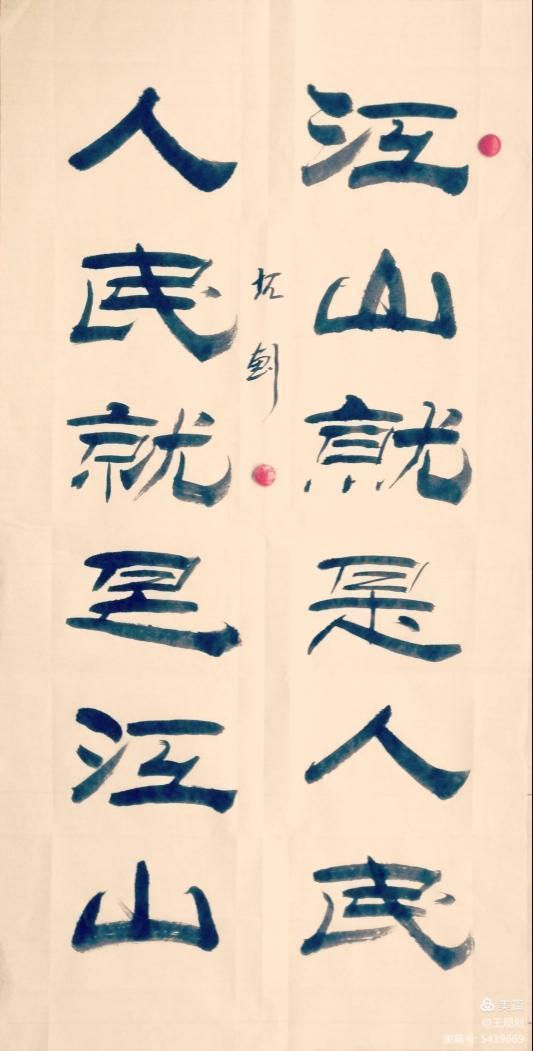 江山就是人民
人民就是江山
美篇
@王规划
美篇号: 5419669